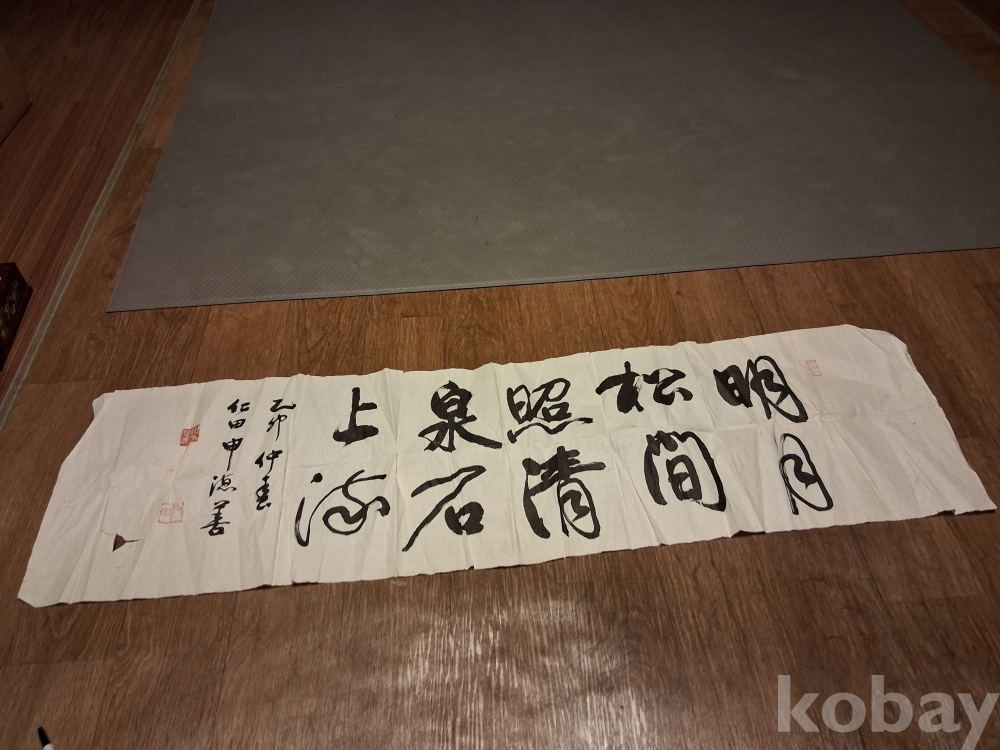 明月
松間
照清
泉石
上流
乙卯仲春
仁田申德善
kobay